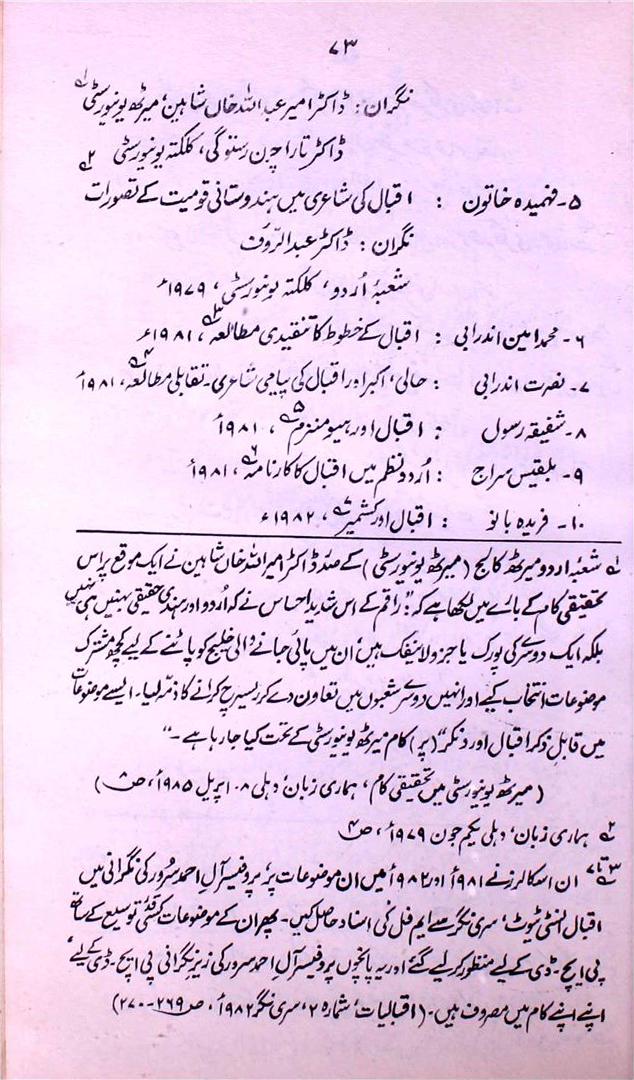 ۷۳
نگران : ڈاکٹر امیر عبداللہ خاں شاہین، میرٹھ یونیورسٹی ؎۱
ڈاکٹر تارا چرن رستوگی، کلکتہ یونیورسٹی ؎۲
۵۔ فہمیدہ خاتون : اقبال کی شاعری میں ہندوستانی قومیت کے تصورات
نگران : ڈاکٹر عبدالرؤف
شعبۂ اُردو، کلکتہ یونیورسٹی، ۱۹۷۹ء
۶۔ محمد امین اندرابی : اقبال کے خطوط کا تنقیدی مطالعہ ؎۳، ۱۹۸۱ء
۷۔ نصرت اندرابی : حالی، اکبر اور اقبال کی پیامی شاعری۔ تقابلی مطالعہ ؎۴، ۱۹۸۱ء
۸۔ شفیقہ رسول : اقبال اور ہیومنزم ؎۵، ۱۹۸۱ء
۹۔ بلقیس سراج : اُردو نظم میں اقبال کا کارنامہ ؎۶، ۱۹۸۱ء
۱۰۔ فریدہ بانو : اقبال اور کشمیر ؎۷، ۱۹۸۲ء
؎۱ شعبۂ اردو میرٹھ کالج (میرٹھ یونیورسٹی) کے صدر ڈاکٹر امیر اللہ خاں شاہین نے ایک موقع پر اس
تحقیقی کام کے بارے میں لکھا ہے کہ : "راقم کے اس شدید احساس نے کہ اُردو اور ہندی حقیقی بہنیں ہی نہیں
بلکہ ایک دوسرے کی پورک یا جزو لاینفک ہیں، ان میں پائی جانے والی خلیج کو پاٹنے کے لیے کچھ مشترک
موضوعات انتخاب کیے اور انہیں دوسرے شعبوں میں تعاون دے کر ریسرچ کرانے کا ذمہ لیا۔ ایسے موضوعات
میں قابل ذکر اقبال اور دنکر" (پر) کام میرٹھ یونیورسٹی کے تحت کیا جا رہا ہے۔"
(میرٹھ یونیورسٹی میں تحقیقی کام، ہماری زبان، دہلی ۸۔ اپریل ۱۹۸۵ء، ص ۸)
؎۲ ہماری زبان، دہلی یکم جون ۱۹۷۹ء، ص ۴
؎۳ تا ۷ ان اسکالرز نے ۱۹۸۱ء اور ۱۹۸۲ء میں ان موضوعات پر، پروفیسر آل احمد سُرور کی نگرانی میں
اقبال انسٹی ٹیوٹ، سری نگر سے ایم فل کی اسناد حاصل کیں۔ پھر ان کے موضوعات کسی قدر توسیع کے ساتھ
پی ایچ۔ ڈی کے لیے منظور کر لیے گئے اور یہ پانچوں پروفیسر آل احمد سرور کی زیر نگرانی پی ایچ۔ ڈی کے لیے،
اپنے اپنے کام میں مصروف ہیں۔ (اقبالیات، شمارہ ۲، سری نگر ۱۹۸۲ء، ص ۲۶۹-۲۷۰)